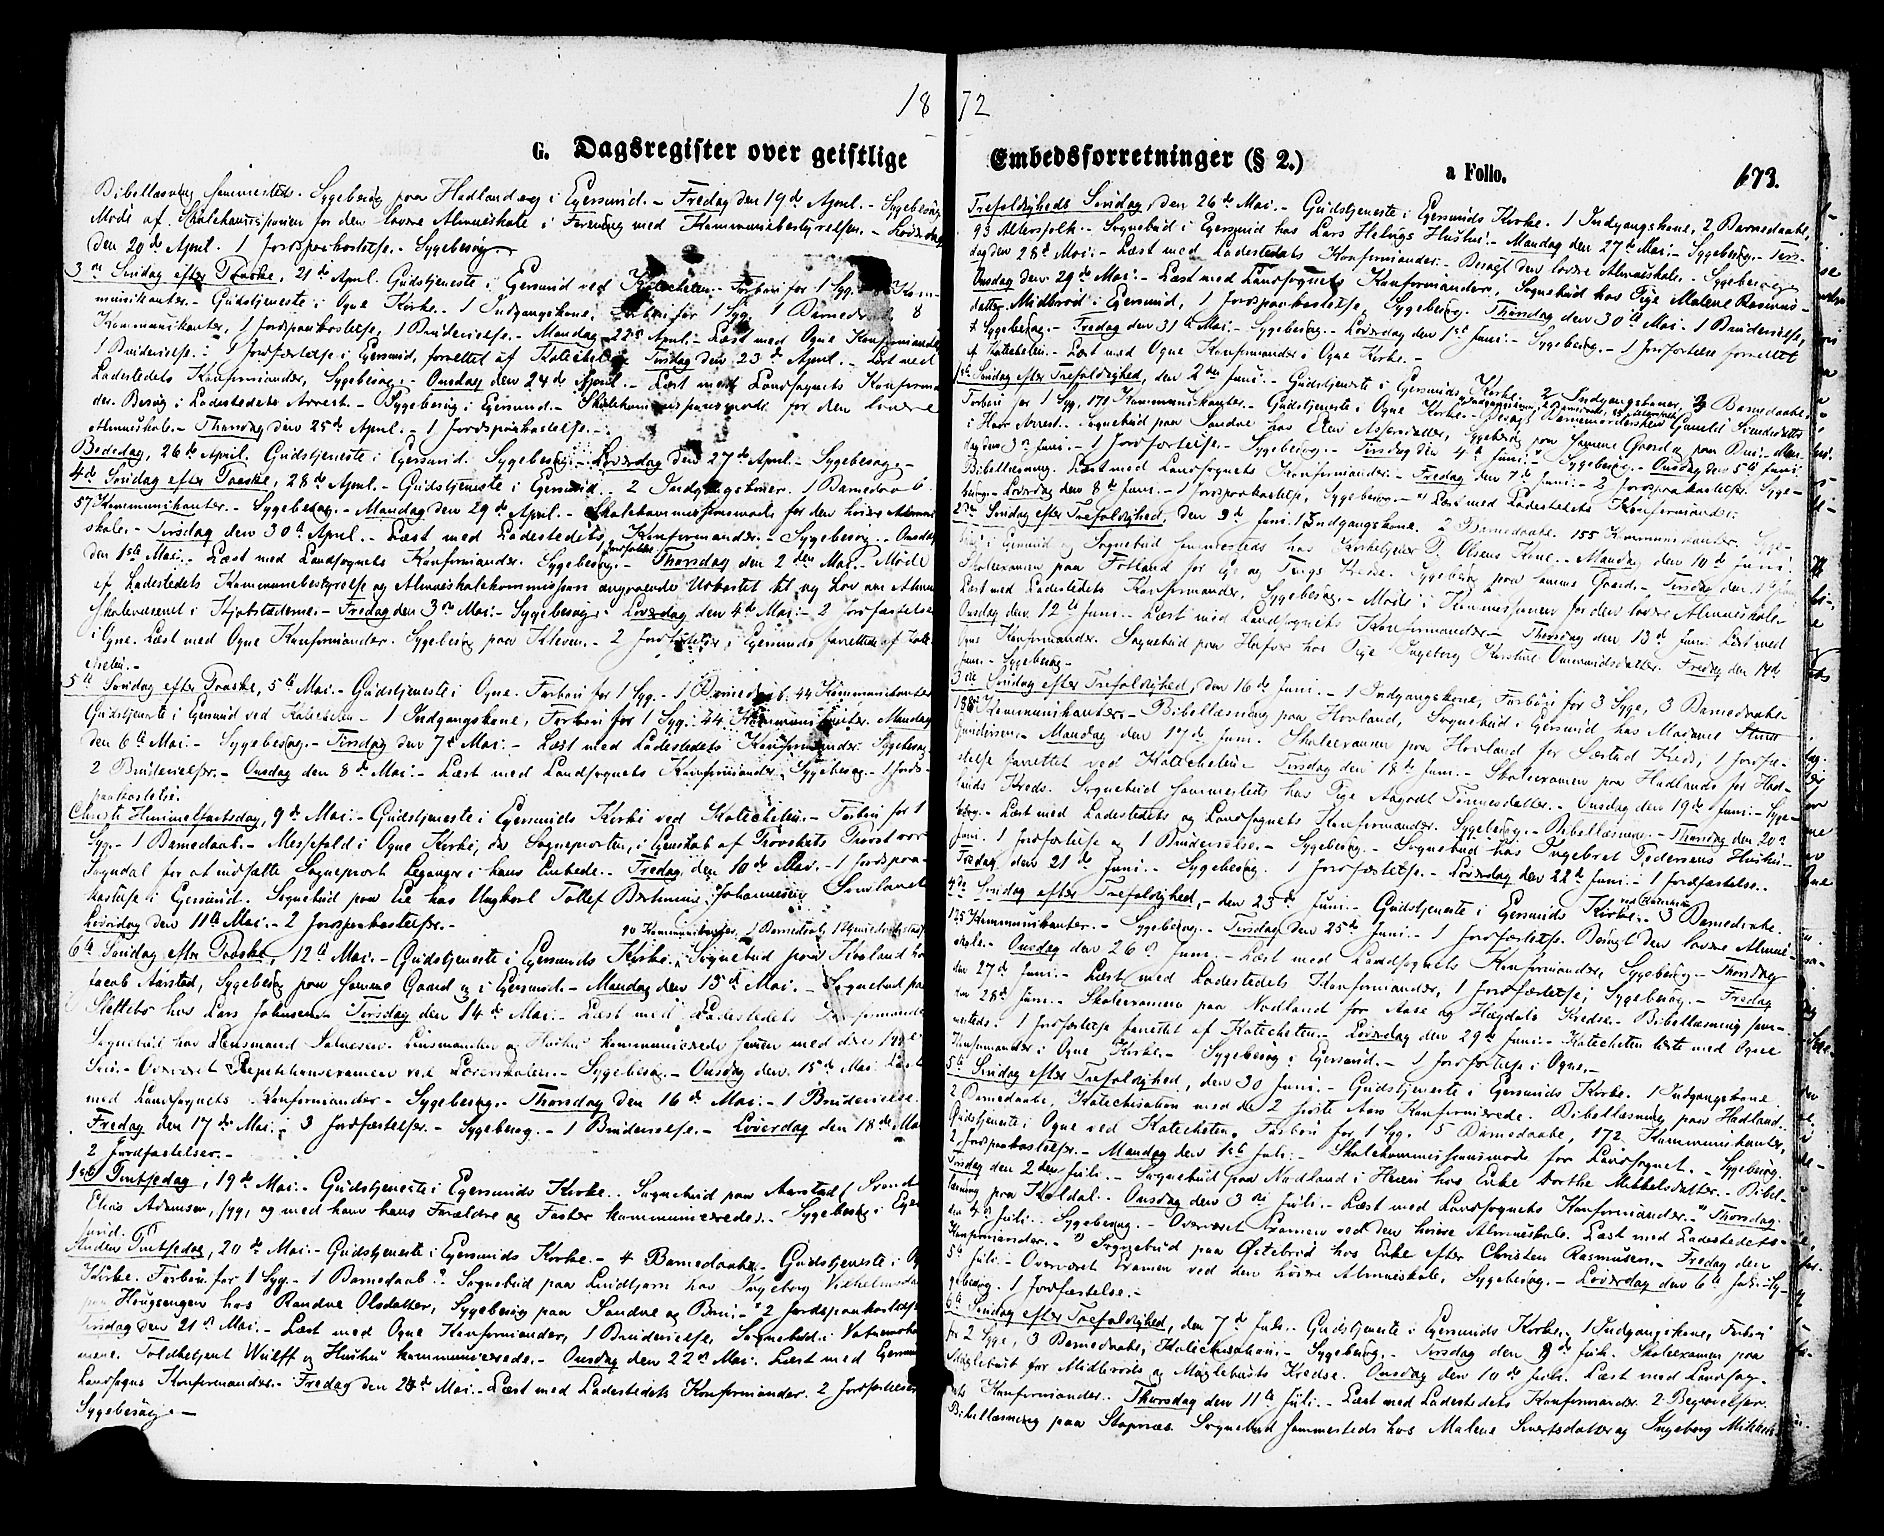 18 72
G. Dagsregister over geistlige Embedsforretninger (§ 2.)
a Folio.
173.
Bibellæsning sammesteds. Sygebesøg paa Hadland og i Egersund. - Fredag den 19de April. - Sygebesøg
Møde af Skolekommissionen for den lavere Almueskole i Forening med Kommunebestyrelsen. - Løverdag
den 20de April. 1 Jordspaakastelse. - Sygebesøg. -
3die Søndag efter Paaske, 21de April. Gudstjeneste i Egersund ved Katecheten. - Forbøn for 1 Syg.
munikanter. - Gudstjeneste i Ogne Kirke. - 1 Indgangskone, Forbøn for 1 Syg. 1 Barnedaab 8
Kommunikanter, 1 Jordspaakastelse, 1 Brudevielse. - Mandag 22de April. - Læst med Ogne Konfirmander
1 Brudevielse. - 1 Jordfæstelse i Egersund, forrettet af Katecheten. Tirsdag den 23de April. - Læst med
Ladestedets Konfirmander, Sygebesøg. - Onsdag den 24de April. - Læst med Landsognets Konfirman-
der. Besøg i Ladestedets Arrest. - Sygebesøg i Egersund. - Skolekommissionsmøde for den lavere
Almueskole. - Thorsdag den 25de April. - 1 Jordspaakastelse. -
Bededag, 26de April. Gudstjeneste i Egersund. Sygebesøg. - Løverdag den 27de April. - Sygebesøg. -
4de Søndag efter Paaske, 28de April. - Gudstjeneste i Egersund. 2 Indgangskoner. 1 Barnedaab.
57 Kommunikanter. - Sygebesøg. - Mandag den 29de April. - Skolekommissionsmøde for den høiere Almue-
skole. - Tirsdag den 30te April. - Læst med Ladestedets Konfirmander. - Sygebesøg. - Onsdag
den 1ste Mai. - Læst med Landsognets Konfirmander. Sygebesøg. - Thorsdag den 2den Mai. - Møde
af Ladestedets Kommunebestyrelse og Almueskolekommission angaaende Udkastet til ny Lov om Almue-
skolevæsenet i Kjøbstæderne. - Fredag den 3die Mai. - Sygebesøg. - Løverdag den 4de Mai. - 2 Jordfæstelser
i Ogne. Læst med Ogne Konfirmander. Sygebesøg paa Kleven. - 2 Jordfæstelser i Egersund forrettet af Kate-
cheten. -
5te Søndag efter Paaske, 5te Mai. - Gudstjeneste i Ogne. Forbøn for 1 Syg. - 1 Barnedaab. 44 Kommunikanter
Gudstjeneste i Egersund ved Katecheten. - 1 Indgangskone, Forbøn for 1 Syg. 44 Kommunikanter. Mandag
den 6te Mai. - Sygebesøg. - Tirsdag den 7de Mai. - Læst med Ladestedets Konfirmander. Sygebesøg.
2 Brudevielser. - Onsdag den 8de Mai. - Læst med Landsognets Konfirmander, Sygebesøg. - 1 Jords-
paakastelse.
Christi Himmelfartsdag, 9de Mai. - Gudstjeneste i Egersunds Kirke ved Katecheten. - Forbøn for 1
Syg. - 1 Barnedaab. - Messefald i Ogne Kirke, da Sognepresten, i Egenskab af Provstiets Provst var
Sogndal for at indsætte Sogneprest Leganger i hans Embede. - Fredag, den 10de Mai. - 1 Jordspaa-
kastelse i Egersund. Sognebud paa Eie hos Ungkarl Tollef Bertinius Johannesen
Løverdag den 11te Mai. - 2 Jordspaakastelser. -
6te Søndag efter Paaske, 12te Mai. - Gudstjeneste i Egersunds Kirke. Sognebud paa
Jacob Aarstad, Sygebesøg paa samme Gaard og i Egersund. - Mandag den 13de Mai. - Sognebud paa
Slettebø hos Lars Johnsen. Tirsdag den 14de Mai. - Læst med Ladestedets Konfirmander
Sognebud hos Lensmand Salvesen. Lensmanden og Hustru kommunicerede
Overværet Repetitionsexamen ved Lærerskolen. - Sygebesøg. - Onsdag den 15de Mai. Læst
med Landsognets Konfirmander. - Sygebesøg. - Thorsdag den 16de Mai. - 1 Brudevielse.
Fredag den 17de Mai. - 3 Jordfæstelser. - Sygebesøg. - 1 Brudevielse. - Løverdag den 18de Mai
2 Jordfæstelser. -
1ste Pintsedag, 19de Mai. - Gudstjeneste i Egersunds Kirke. Sognebud paa Aarstad
Elias Adamsen, syg, og med ham hans Forældre og Faster kommunicerede. - Sygebesøg i Eger-
sund.
Anden Pintsedag, 20de Mai. - Gudstjeneste i Egersunds Kirke. - 4 Barnedaabe. - Gudstjeneste i Ogne
Kirke. Forbøn for 1 Syg. - 1 Barnedaab. Sognebud paa Lindtjørn hos Ingeborg
paa Hougsengen hos Randve Olsdatter, Sygebesøg paa Sandve og Bru. - 2 Jordspaakastelser
Tirsdag den 21de Mai. - Læst med Ogne Konfirmander, 1 Brudevielse, Sognebud
Toldbetjent Wulff og Hustru kommunicerede. - Onsdag den 22de Mai. Læst med Egersund
Landsogns Konfirmander. - Fredag den 24de Mai. - Læst med Ladestedets Konfirmander. 2 Jordfæstelser
Sygebesøg. -
Trefoldigheds Søndag, den 26de Mai. - Gudstjeneste i Egersunds Kirke. 1 Indgangskone, 2 Barnedaabe,
93 Altersfolk. - Sognebud i Egersund hos Lars Helvigs Hustru. - Mandag den 27de Mai. - Sygebesøg. - Tirs-
dag den 28de Mai. - Læst med Ladestedets Konfirmander. - Besøgt den lavere Almueskole. - Sygebesøg.
Onsdag den 29de Mai. - Læst med Landsognets Konfirmander, Sognebud hos Pige Malene Rasmus-
datter Midbrød i Egersund, 1 Jordspaakastelse, Sygebesøg. Thorsdag den 30te Mai. 1 Brudevielse,
Sygebesøg. - Fredag den 31te Mai. - Sygebesøg. - Løverdag den 1ste Juni. - Sygebesøg. - 1 Jordfæstelse forrettet
af Katecheten. - Læst med Ogne Konfirmander i Ogne Kirke. -
1ste Søndag efter Trefoldighed, den 2den Juni. - Gudstjeneste i Egersunds Kirke. 2 Indgangskoner. Barnedaabe.
Forbøn for 1 Syg, 171 Kommunikanter. - Gudstjeneste i Ogne Kirke. - Besøgt Barnemordersken Gunild Svendsdatter
i Haar Arrest. - Sognebud paa Sandve hos Elen Assersdatter, Sygebesøg paa samme Gaard og paa Bru. - Man-
dag den 3die Juni. - 1 Jordfæstelse. - Sygebesøg. - Tirsdag den 4de Juni. - Sygebesøg. - Onsdag den 5te Juni
Bibellæsning. Læst med Landsognets Konfirmander. - Fredag den 7de Juni. - 2 Jordspaakastelser. Syge-
besøg. - Løverdag den 8de Juni. - 1 Jordspaakastelse, Sygebesøg. - Læst med Ladestedets Konfirmander.
2den Søndag efter Trefoldighed, den 9de Juni. 1 Indgangskone. 2 Barnedaabe. 155 Kommunikanter. Syge-
besøg i Egersund og Sognebud sammesteds hos Kirketjener P. Olsens Kone. - Mandag den 10de Juni.
Skoleexamen paa Fotland for Eie og Tengs Kreds. Sygebesøg paa samme Gaard. - Tirsdag den 11te Juni
Læst med Ladestedets Konfirmander, Sygebesøg. - Møde i Kommissionen for den lavere Almueskole. -
Onsdag den 12te Juni. - Læst med Landsognets Konfirmander. - Thorsdag den 13de Juni Læst med
Ogne Konfirmander. Sognebud paa Hafsø hos Pige Ingeborg Kirstine Omundsdatter. Fredag den 14de
Juni. Sygebesøg. -
3die Søndag efter Trefoldighed, den 16de Juni. - 1 Indgangskone, Forbøn for 3 Syge, 3 Barnedaabe.
Kommunikanter. - Bibellæsning paa Hovland, Sognebud i Egersund hos Madame
Gundersen. - Mandag den 17de Juni. Skoleexamen paa Hovland for Sæstad Kreds, 1 Jordfæ-
stelse forrettet ved Katecheten. Tirsdag den 18de Juni. - Skoleexamen paa Hadland for Had-
lands Kreds. Sognebud sammesteds hos Pige Aagodt Tønnesdatter. - Onsdag den 19de Juni. - Syge-
besøg. - Læst med Ladestedets og Landsognets Konfirmander. Sygebesøg. - Bibellæsning. - Thorsdag den 20de
Juni. 1 Jordfæstelse og 1 Brudevielse. - Sygebesøg. - Sognebud hos Ingebret Pedersens Hustru. -
Fredag den 21de Juni. - Sygebesøg. 1 Jordfæstelse. - Løverdag den 22de Juni. - 1 Jordfæstelse. -
4de Søndag efter Trefoldighed, - den 23de Juni. - Gudstjeneste i Egersunds Kirke ved Katecheten. - 3 Barnedaabe.
125 Kommunikanter. - Sygebesøg. - Tirsdag den 25de Juni. - 1 Jordfæstelse. Besøgt den lavere Almue-
skole. - Onsdag den 26de Juni. Læst med Landsognets Konfirmander, Sygebesøg. - Thorsdag
den 27de Juni. - Læst med Ladestedets Konfirmander, 1 Jordfæstelse, Sygebesøg. - Fredag
den 28de Juni. - Skoleexamen paa Nodland for Aase og Hægdals Kredse. - Bibellæsning sam-
mesteds. 1 Jordfæstelse forrettet af Katecheten. - Løverdag den 29de Juni. - Katecheten læste med Ogne
Konfirmander i Ogne Kirke. - Sygebesøg i Egersund. - 1 Jordfæstelse i Ogne. -
5te Søndag efter Trefoldighed, den 30 Juni. - Gudstjeneste i Egersunds Kirke. 1 Indgangskone
2 Barnedaabe, Katechisation med de 2 første Aars Konfirmerede. Bibellæsning paa Hadland.
Gudstjeneste i Ogne ved Katecheten. Forbøn for 1 Syg. 5 Barnedaabe, 172 Kommunikanter,
2 Jordspaakastelser. - Mandag den 1ste Juli. - Skolekommissionsmøde for Landsognet. - Sygebesøg.
Tirsdag den 2den Juli. - Sognebud paa Nodland i Heien hos Enke Dorthe Mikkelsdatter. - Bibel-
læsning paa Koldal. Onsdag den 3die Juli. - Læst med Landsognets Konfirmander. - Thorsdag
den 4de Juli. Sygebesøg. - Overværet Examen ved den høiere Almueskole. Læst med Ladestedets
Konfirmander. - Sognebud paa Østebrød hos Enke efter Christen Rasmusen. - Fredag den
5te Juli. - Overværet Examen ved den høiere Almueskole, Sygebesøg. - Løverdag den 6te Juli. Sy-
gebesøg. 1 Jordfæstelse. -
6te Søndag efter Trefoldighed, den 7de Juli. Gudstjeneste i Egersunds Kirke. 1 Indgangskone, Forbøn
for 2 Syge, 3 Barnedaabe, Katechisation. - Sygebesøg. - Tirsdag den 9de Juli. Skoleexamen paa
for Midbrøds og Maglebusts Kredse. Onsdag den 10de Juli. Læst med Landsog-
nets Konfirmander. Thorsdag den 11te Juli. - Læst med Ladestedets Konfirmander. 2 Begravelser.
Bibellæsning paa Skaprues. Sognebud sammesteds hos Malene Sivertsdatter og Ingeborg